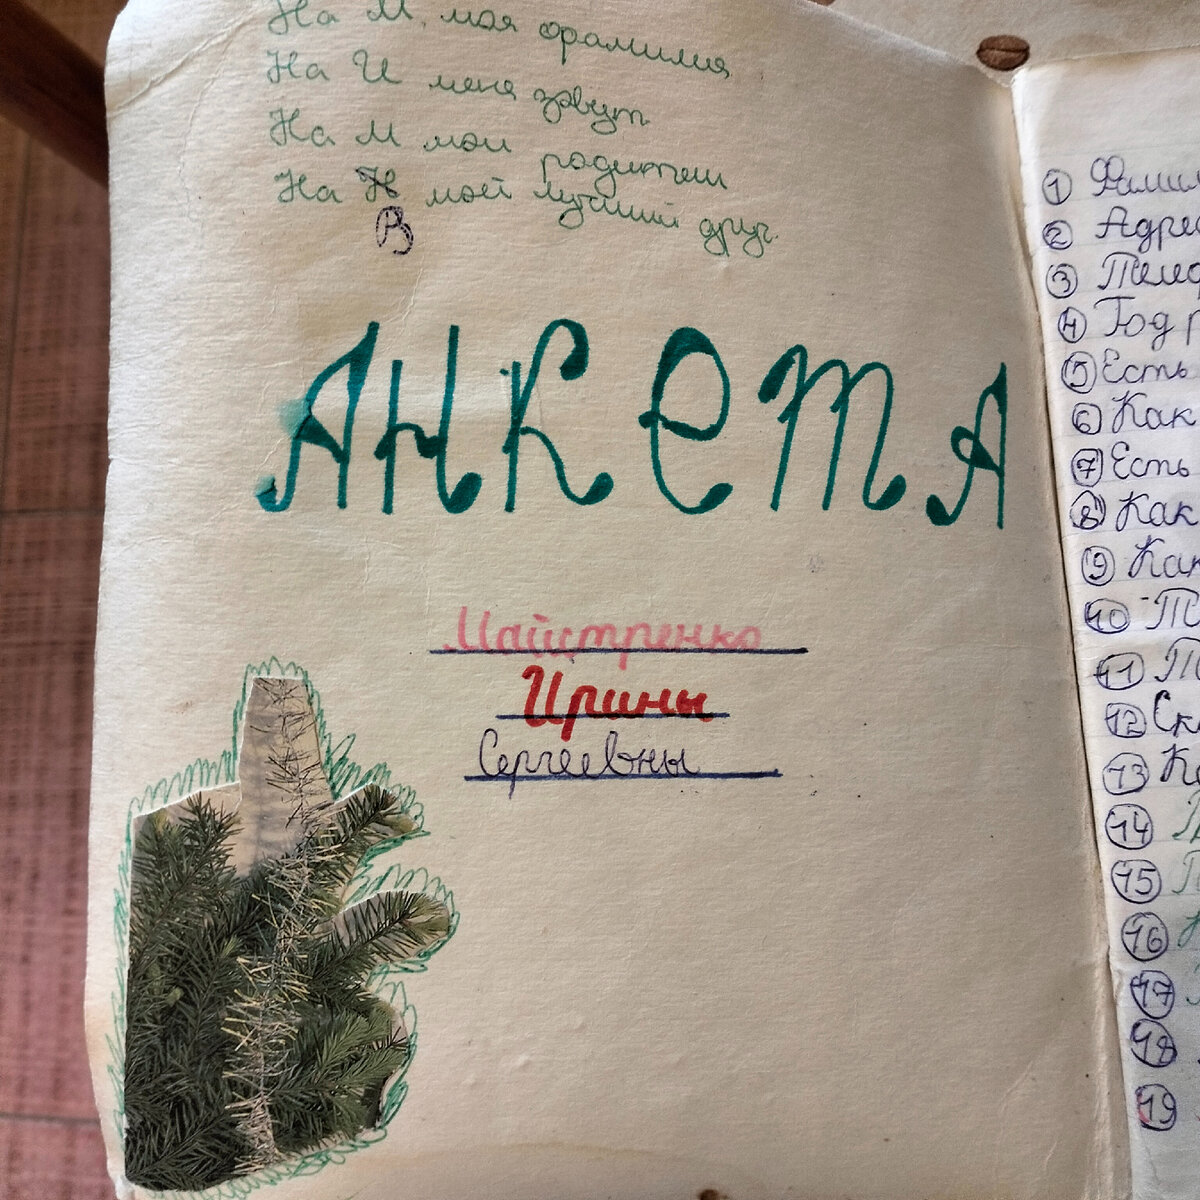 На М, моя фрамилия
На И меня завут
На М мои родители
На Н мой лучший друг.
В
АНКЕТА
Майстренко
Ирины
Сергеевны
1
2 Адрес
3
4 Год р
5 Есть
6 Как
7 Есть
8 Как
9 Как
10
11
12
13
14
15
16
17
18
19